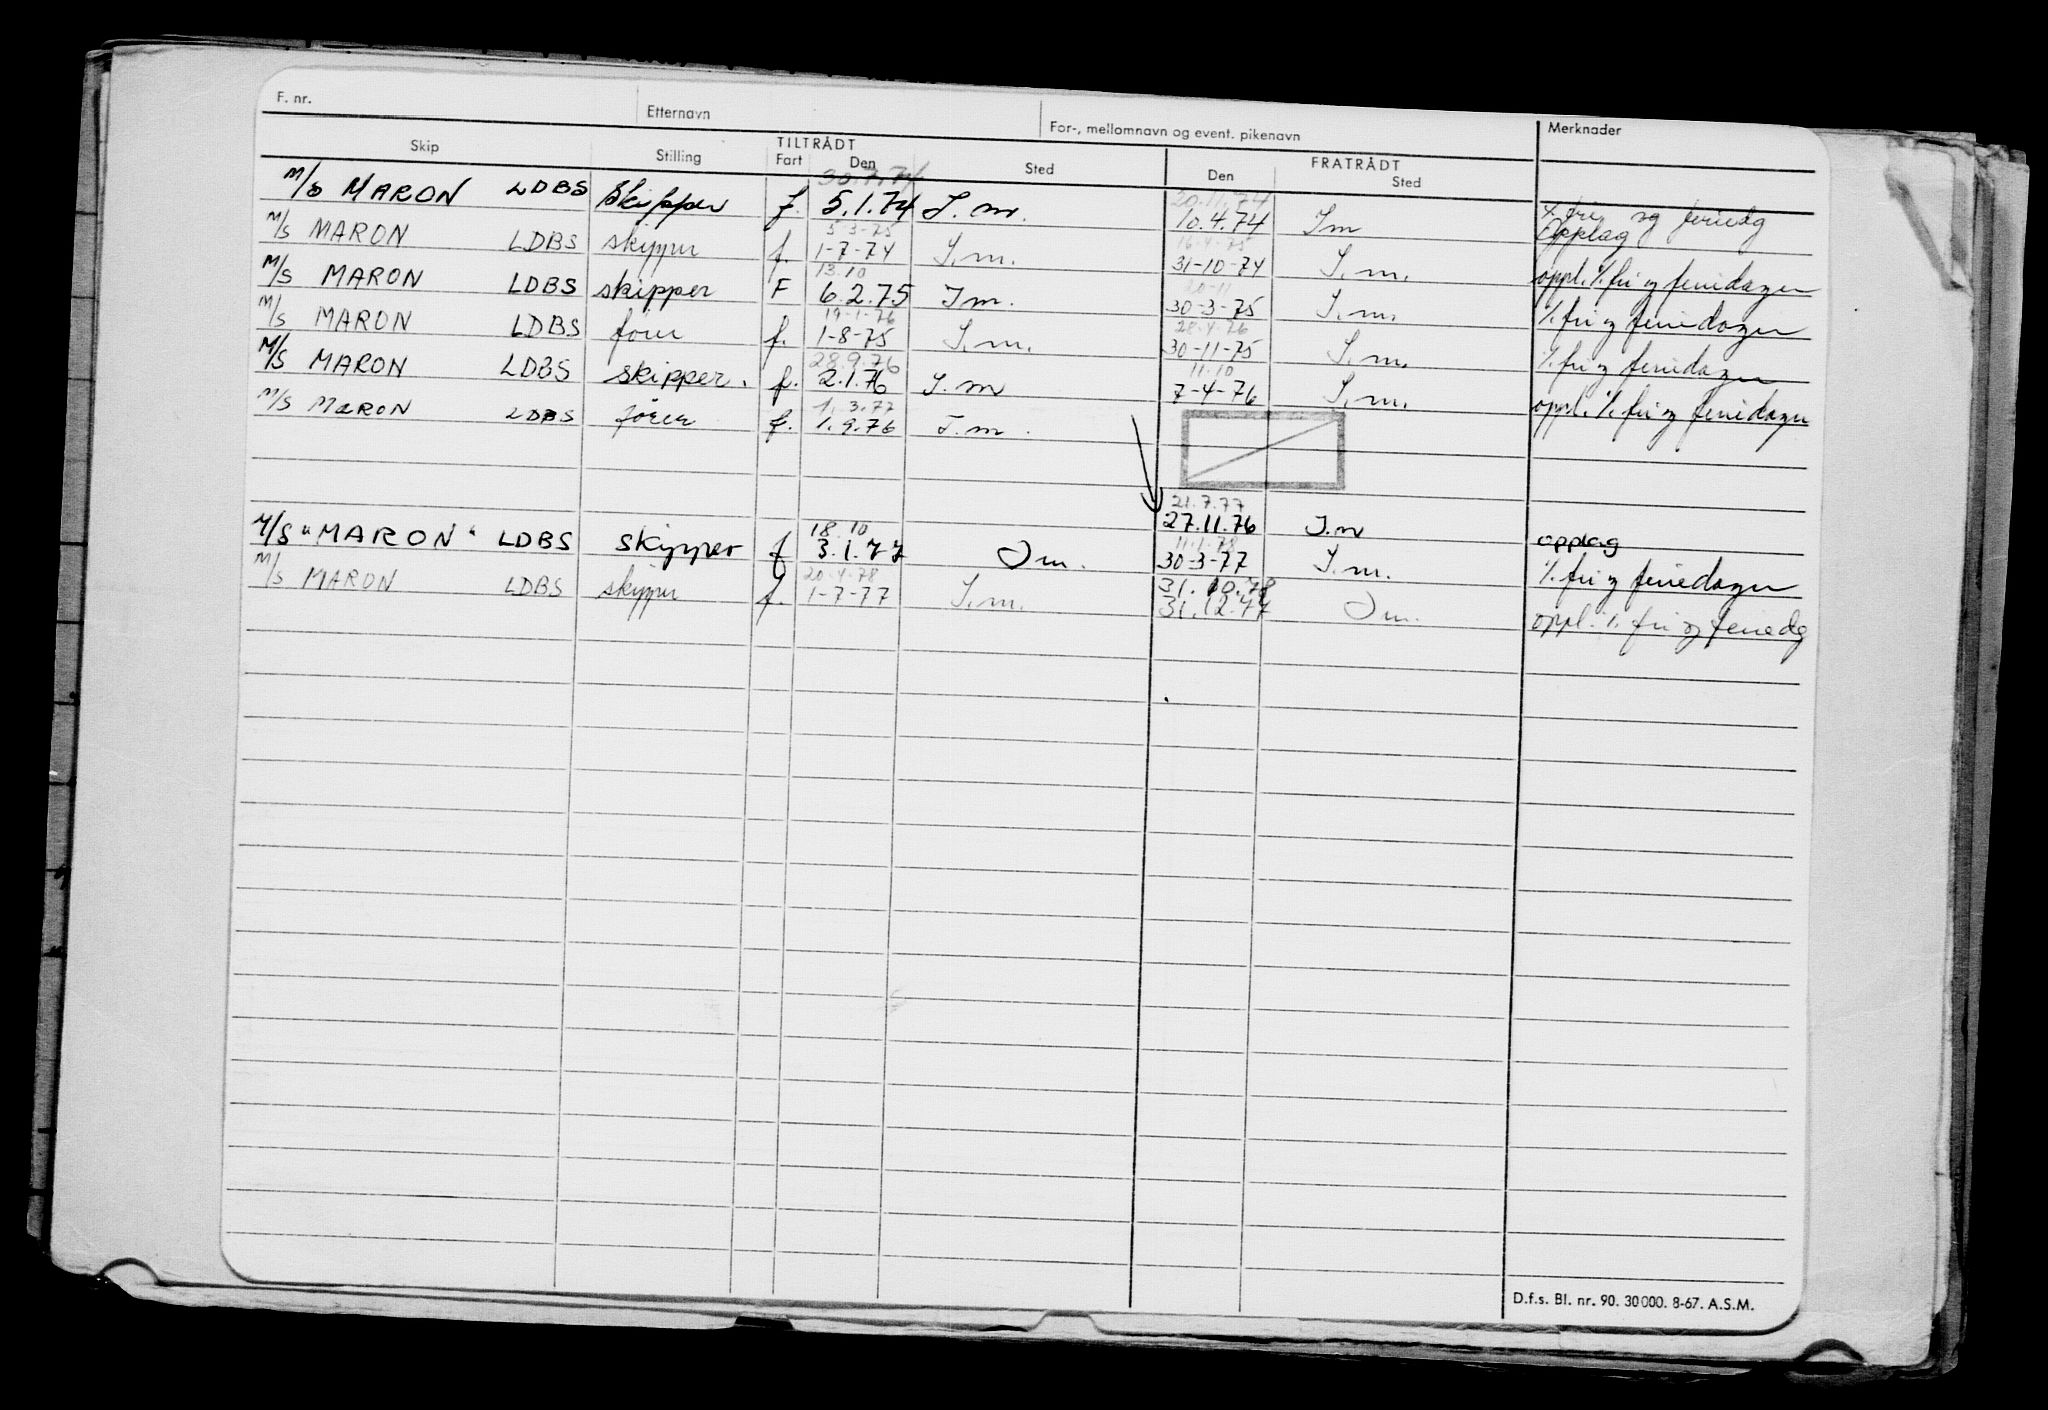 F. nr. Etternavn For-, mellomnavn og event. pikenavn Merknader
Skip Stilling TILTRÅDT Fart Den Sted FRATRÅDT Den Sted
30.7.74 20.11.74 fri og feriedg
M/S MARON LDBS Skipper f. 5.1.74 I.m. 10.4.74 Im Opplag
5-3-75 16-4-75
M/S MARON LDBS skipper f. 1-7-74 I.m. 31-10-74 I.m. oppl. % fri og feriedager
13.10 20-11
M/S MARON LDBS skipper F 6.2.75 Im. 30-3-75 I.m. % fri og feriedager
19-1-76 28.4.76
M/S MARON LDBS fører f. 1-8-75 I.m. 30-11-75 I.m. % fri og feriedager
28.9.76 11.10
M/S MARON LDBS skipper. f. 2.1.76 I.m 7-4-76 I.m. oppl. % fri og feriedager
1.3.77
M/S MARON LDBS fører f. 1.9.76 I.m.
21.7.77
27.11.76 I.m opplag
18.10 11.1.78
M/S "MARON" LDBS skipper f 3.1.77 Im. 30-3-77 I.m. % fri og feriedager
20-4-78 31.10.78
M/S MARON LDBS skipper f. 1-7-77 I.m. 31.12.77 Im. oppl. % fri og feriedg
D.f.s. Bl. nr. 90. 30000. 8-67. A.S.M.